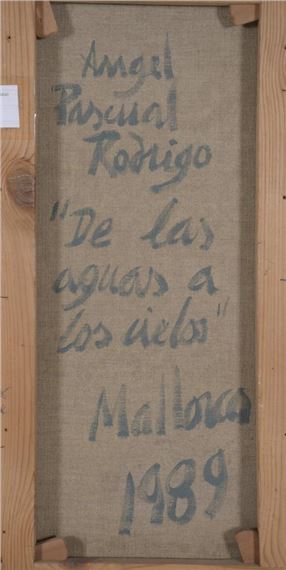 Angel
Pascual
Rodrigo
"De las
aguas a
los cielos"
Mallorca
1989